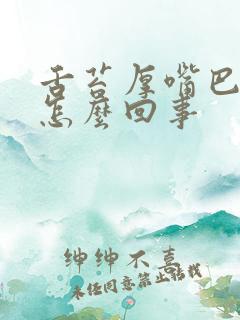 舌苔厚嘴巴
怎麽回事
绅绅不熹
未经同意禁止转载